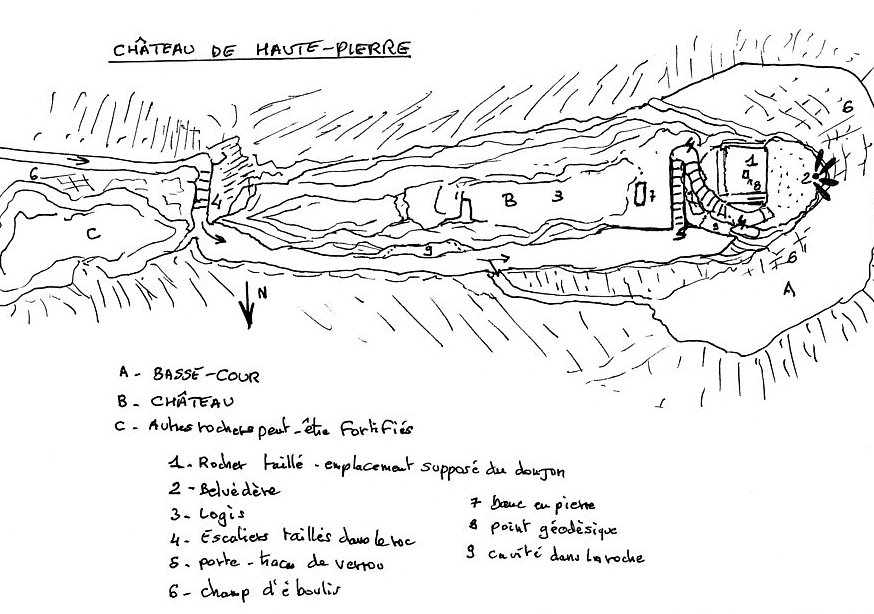 CHÂTEAU DE HAUTE-PIERRE
6
1
6
8
2
7
B
3
4
C
5
9
9
6
A
N
A - BASSE-COUR
B - CHÂTEAU
C - Autres rochers peut-être fortifiés
1 - Rocher taillé - emplacement supposé du donjon
2 - Belvédère
3 - Logis
4 - Escaliers taillés dans le roc
5 - porte - traces de verrou
6 - champ d'éboulis
7 Banc en pierre
8 point géodèsique
9 cavité dans la roche